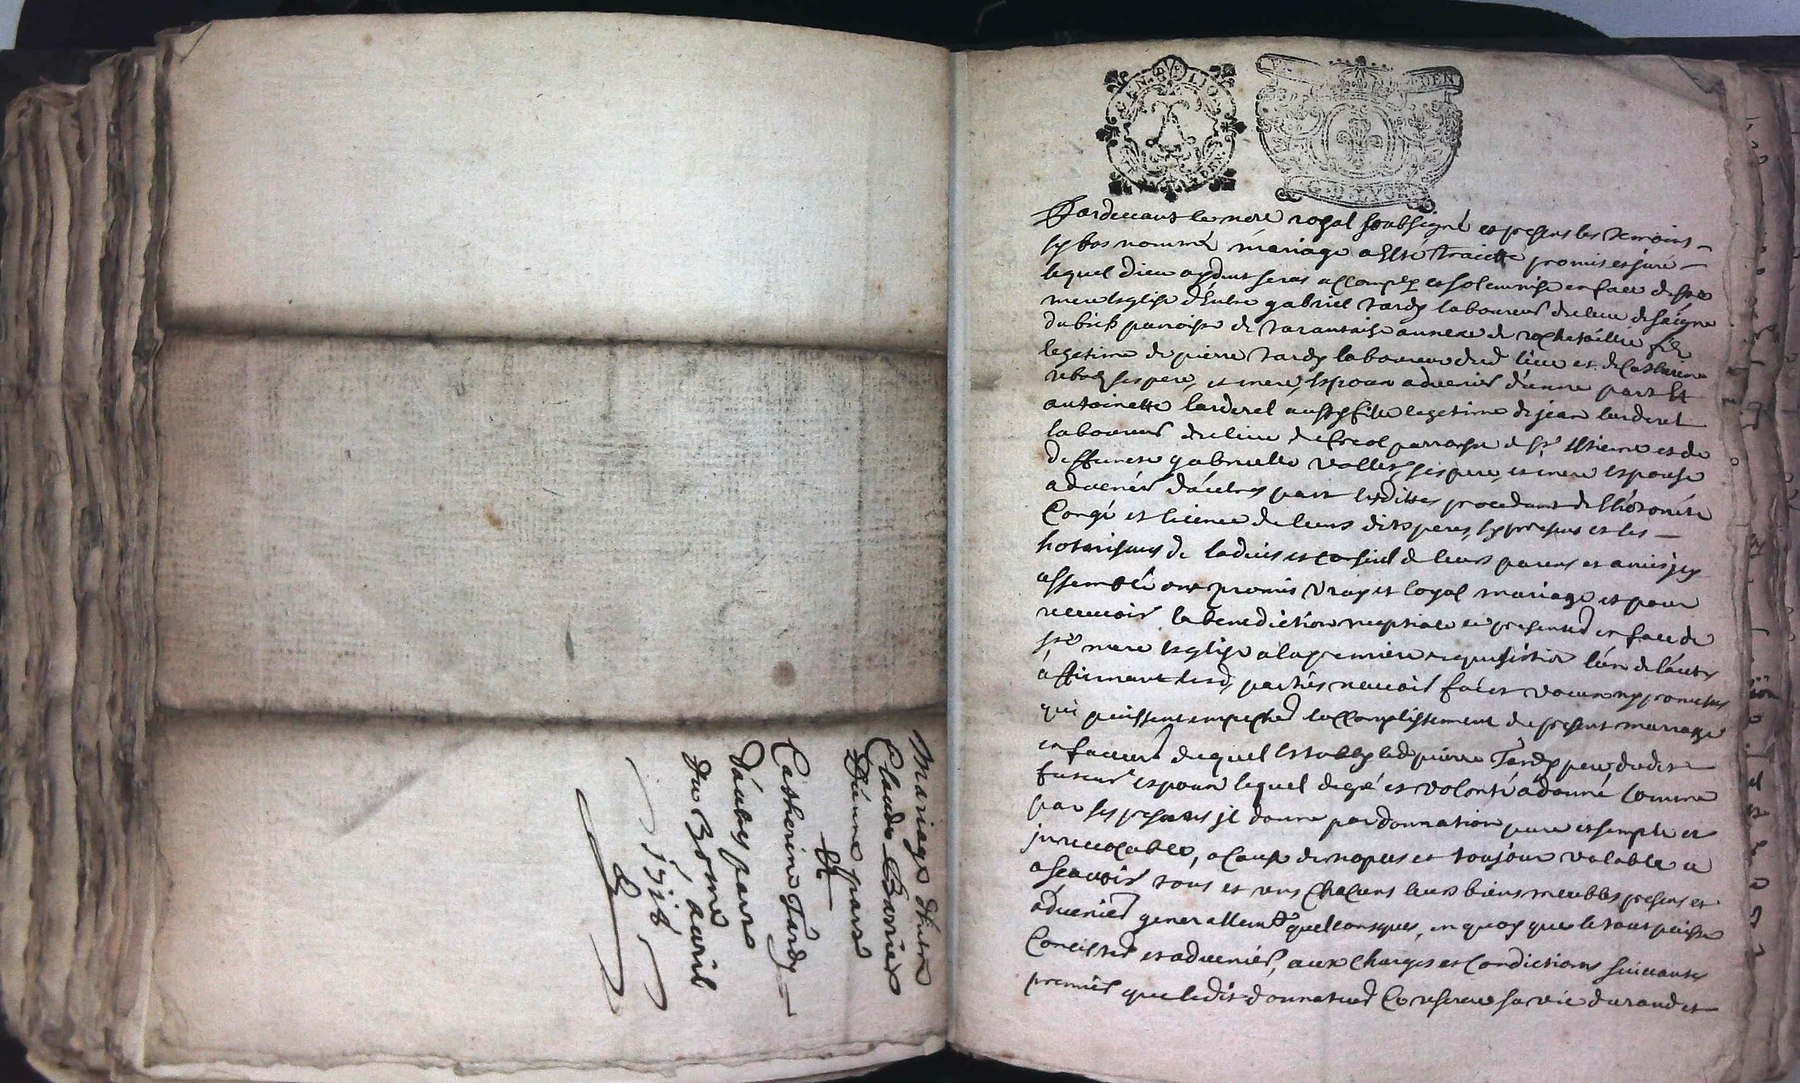 Mariage d'entre
Claude Barrier
d'une part
Et
Catherine Tardy
d'autre part
du 30me avril
1718
GEN DE LIO
Pardevant le nore royal soubsigné et present les temoins
sy bas nommés mariage a esté traicté promis et juré
lequel dieu aydant serat accomply et solemnisé en face de ste
mere esglise d'entre gabriel tardy laboureur du lieu de
paroisse de tarantaise annexe de rochetaillie fils
legitime de pierre tardy laboureur dud lieu et de Catherine
ses pere et mere espoux advenir d'une part Et
antoinette larderet aussy fille legitime de jean larderet
laboureur du lieu de paroisse de st Estienne et de
deffuncte gabrielle ses pere et mere espouse
advenir d'autre part lesdittes procedant de l'hotorité
Congé et licence de leurs dits peres sy presens et les
hotorisans de ladvis et conseil de leurs parens et amis jcy
assemblé ont promis vray et loyal mariage et pour
recevoir la benediction nuptiale se presenter en face de
ste mere esglise a la premiere requisistion l'un de l'autre
affirmant lesd parties n'avoir faict voeux ny promesses
qui puissent empecher laccomplissement du present mariage
en faveur duquel estably led pierre Tardy pere dudit
futeur espoux lequel de gré et volonté a donné comme
par ses presentes jl donne par donnation pure et simple et
jrrevocable, a cause de nopces et toujour valable a
a scavoir tous et uns chacuns leurs biens meubles presens et
advenir generallemt quelconques, en quoy que le tout puisse
Concister et advenir, aux charges et condictions suivantes
premier que ledit donnateur Ce reserve sa vie durand et